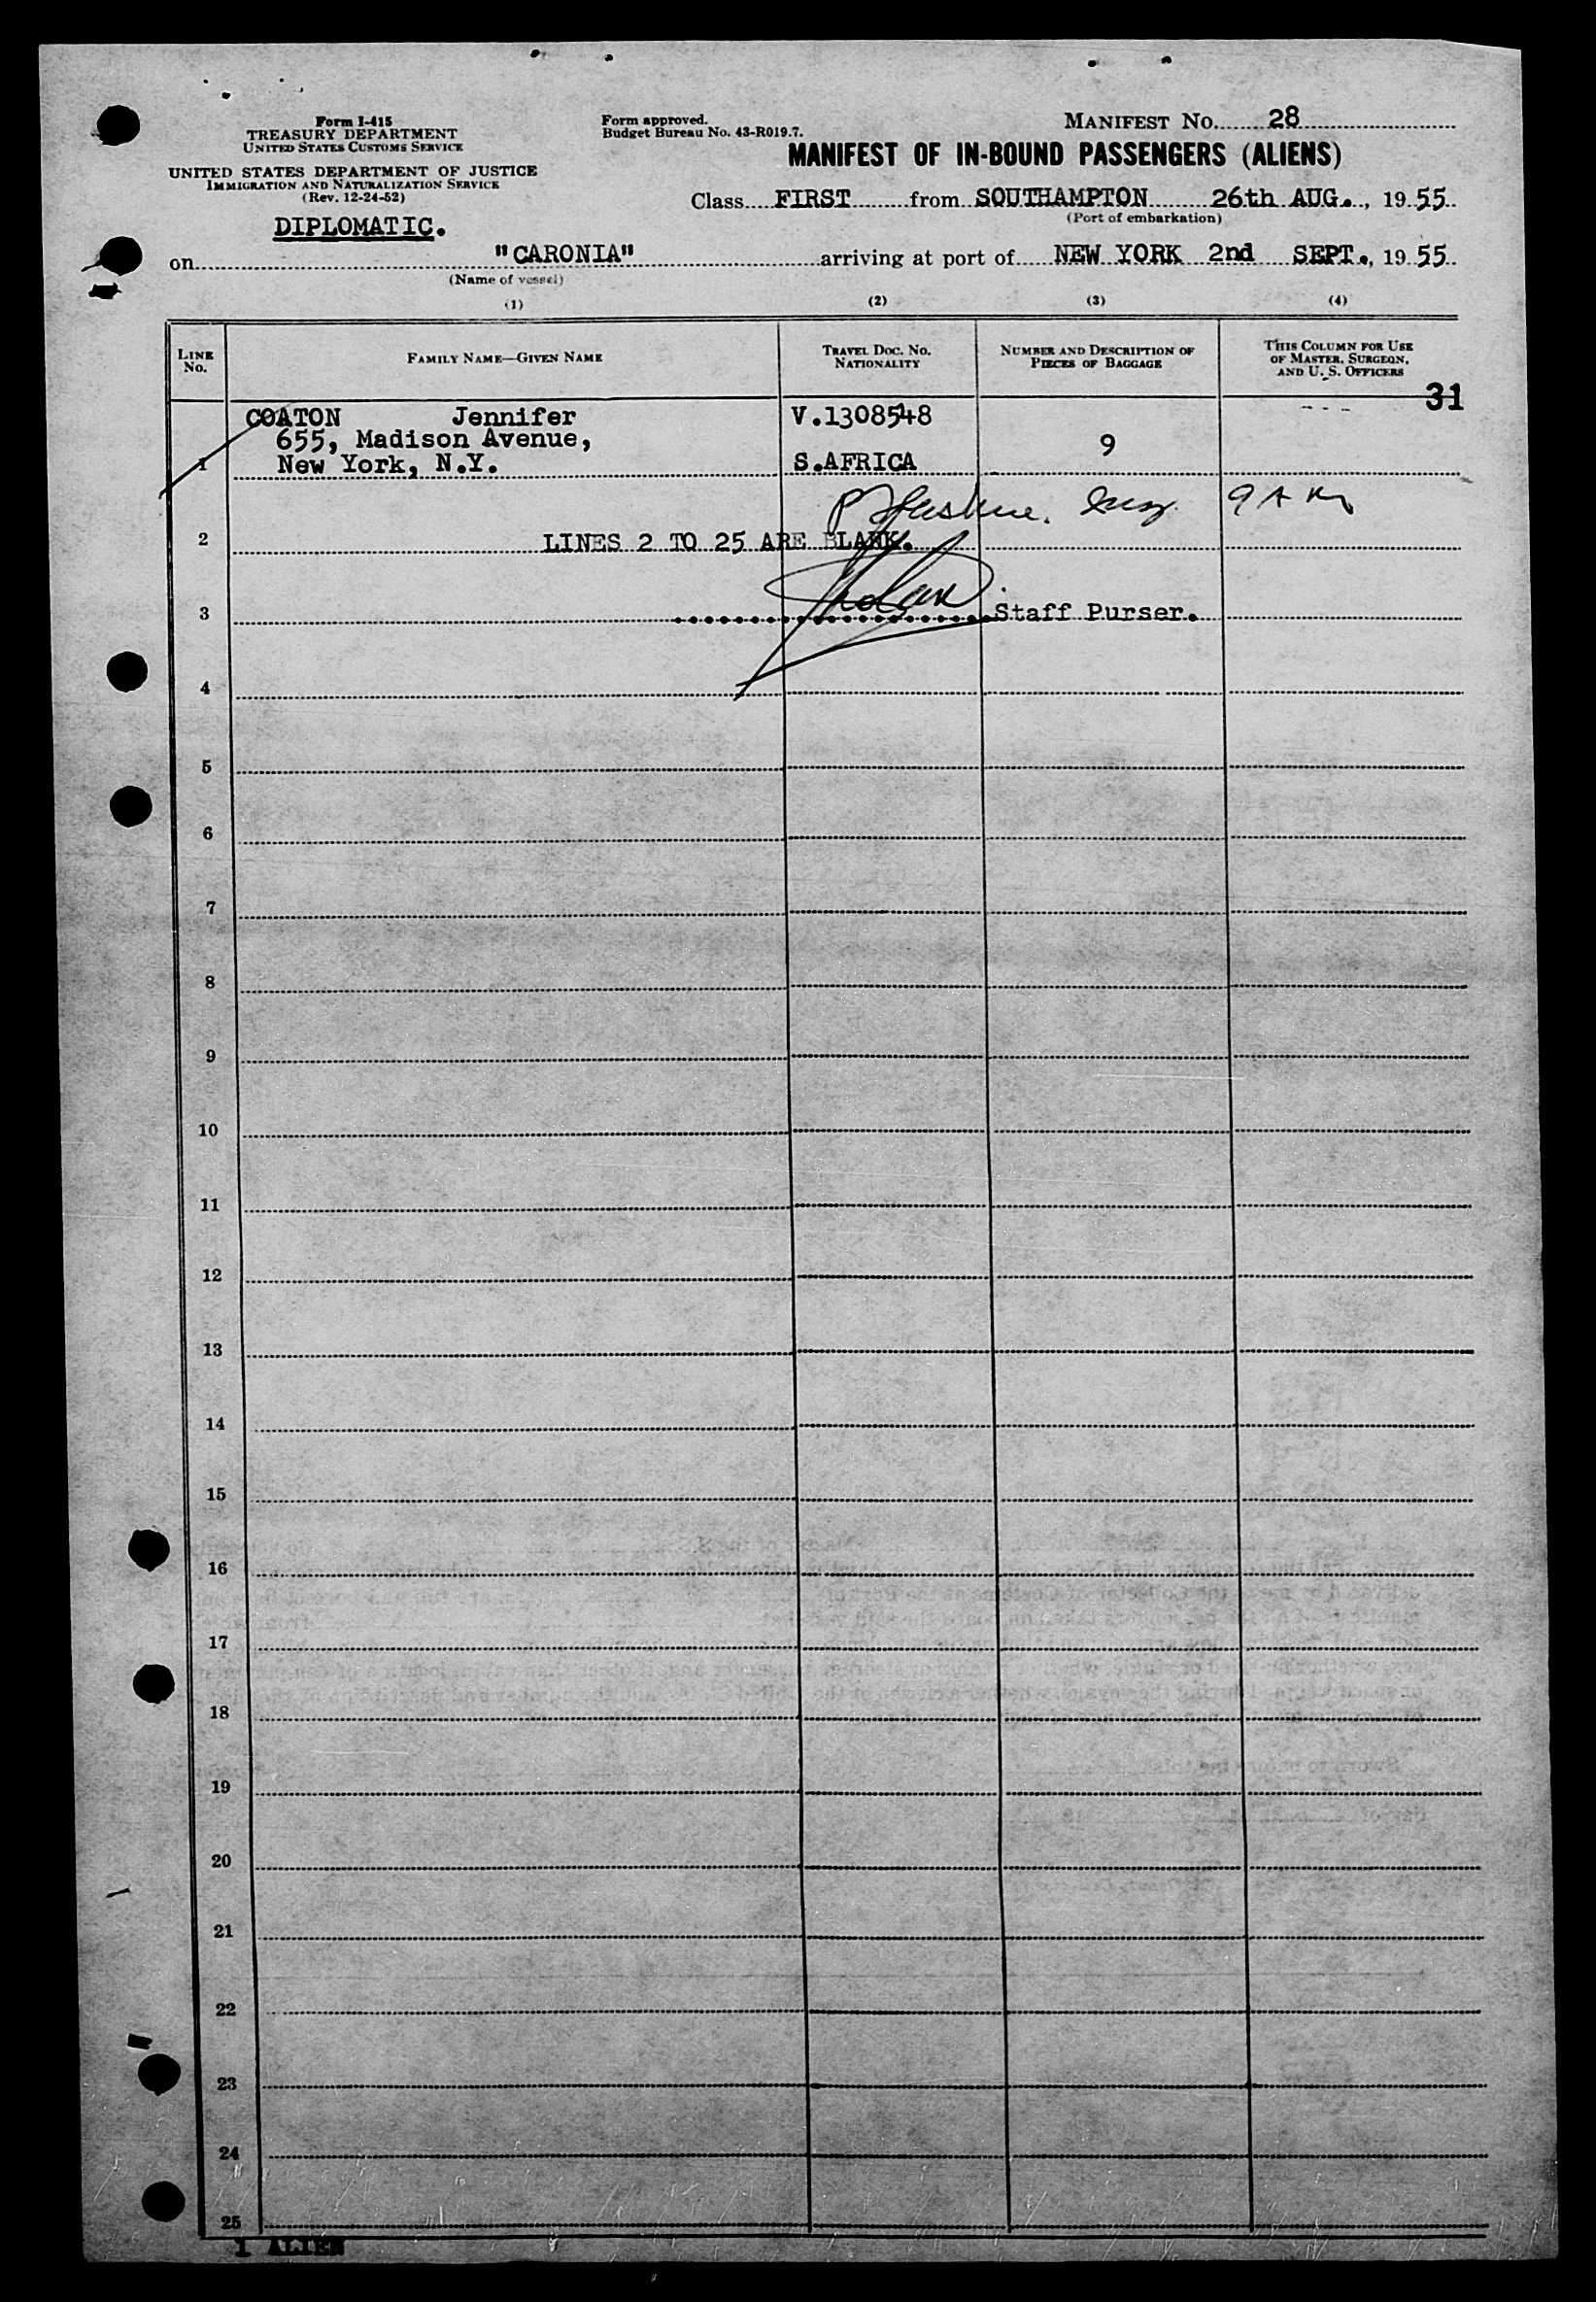 Form I-415
TREASURY DEPARTMENT
UNITED STATES CUSTOMS SERVICE
UNITED STATES DEPARTMENT OF JUSTICE
IMMIGRATION AND NATURALIZATION SERVICE
(Rev. 12-24-52)
DIPLOMATIC.
Form approved.
Budget Bureau No. 43-R019.7.
MANIFEST NO. 28
MANIFEST OF IN-BOUND PASSENGERS (ALIENS)
Class FIRST from SOUTHAMPTON 26th AUG., 1955
(Port of embarkation)
on "CARONIA" arriving at port of NEW YORK 2nd SEPT., 1955
(Name of vessel)
(1) (2) (3) (4)
LINE No. FAMILY NAME—GIVEN NAME TRAVEL DOC. NO. NATIONALITY NUMBER AND DESCRIPTION OF PIECES OF BAGGAGE THIS COLUMN FOR USE OF MASTER, SURGEON, AND U. S. OFFICERS
31
COATON Jennifer V.1308548
655, Madison Avenue, 9
1 New York, N.Y. S.AFRICA
2 LINES 2 TO 25 ARE BLANK.
3 Staff Purser.
4
5
6
7
8
9
10
11
12
13
14
15
16
17
18
19
20
21
22
23
24
25
1 ALIEN